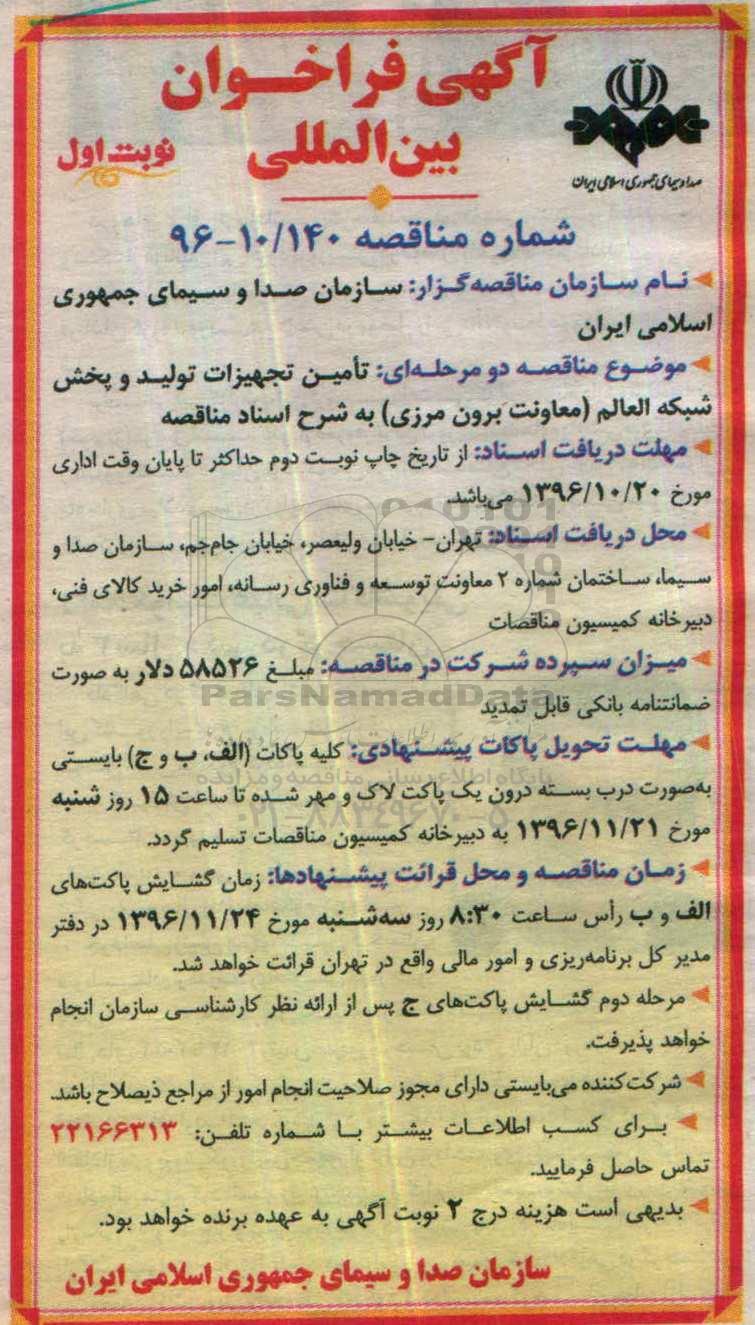 آگهی فراخـوان
بین‌المللی
نوبت اول
صدا و سیمای جمهوری اسلامی ایران
شماره مناقصه ۱۰/۱۴۰-۹۶
نـام سـازمان مناقصه‌گـزار: سـازمان صدا و سـیمای جمهوری
اسلامی ایران
موضـوع مناقصـه دو مرحلـه‌ای: تأمیـن تجهیزات تولیـد و پخش
شبکه العالم (معاونت برون مرزی) به شرح اسناد مناقصه
مهلت دریافت اسـناد: از تاریخ چاپ نوبـت دوم حداکثر تا پایان وقت اداری
مورخ ۱۳۹۶/۱۰/۲۰ می‌باشد.
محل دریافت اسـناد: تهران- خیابان ولیعصر، خیابان جام‌جم، سـازمان صدا و
سـیما، سـاختمان شماره ۲ معاونت توسـعه و فناوری رسـانه، امور خرید کالای فنی،
دبیرخانه کمیسیون مناقصات
میـزان سـپرده شـرکت در مناقصـه: مبلـغ ۵۸۵۲۶ دلار به صورت
ضمانتنامه بانکی قابل تمدید
ParsNamadData
مهلـت تحویل پاکات پیشـنهادی: کلیه پاکات (الف، ب و ج) بایسـتی
پایگاه اطلاع رسانی مناقصه و مزایده
به‌صورت درب بسـته درون یک پاکت لاک و مهر شـده تا ساعت ۱۵ روز شنبه
۰۲۱-۸۸۳۴۹۶۷۰-۵
مورخ ۱۳۹۶/۱۱/۲۱ به دبیرخانه کمیسیون مناقصات تسلیم گردد.
زمـان مناقصـه و محل قرائت پیشـنهادها: زمان گشـایش پاکت‌های
الف و ب رأس سـاعت ۸:۳۰ روز سه‌شـنبه مورخ ۱۳۹۶/۱۱/۲۴ در دفتر
مدیر کل برنامه‌ریزی و امور مالی واقع در تهران قرائت خواهد شد.
مرحله دوم گشـایش پاکت‌های ج پس از ارائه نظر کارشناسـی سازمان انجام
خواهد پذیرفت.
شرکت‌کننده می‌بایستی دارای مجوز صلاحیت انجام امور از مراجع ذیصلاح باشد.
بـرای کسب اطلاعـات بیشـتر بـا شـماره تلفـن: ۲۲۱۶۶۳۱۳
تماس حاصل فرمایید.
بدیهی است هزینه درج ۲ نوبت آگهی به عهده برنده خواهد بود.
سازمان صدا و سیمای جمهوری اسلامی ایران